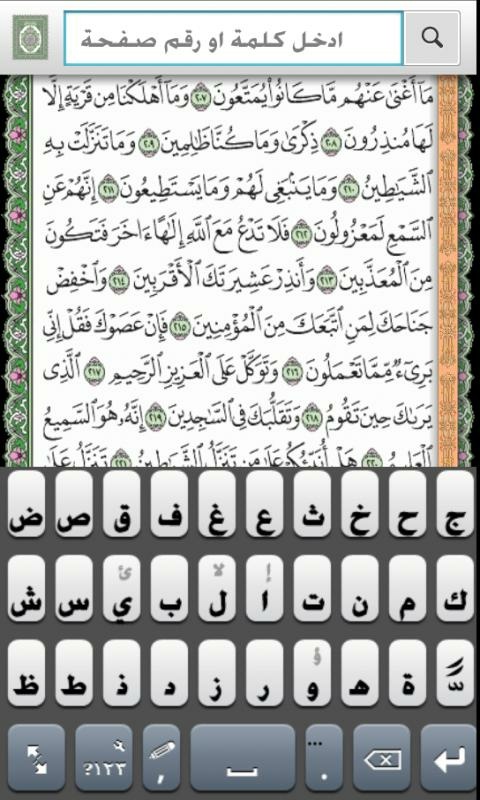 ادخل كلمة او رقم صفحة
مَآ أَغْنَىٰ عَنْهُم مَّا كَانُوا۟ يُمَتَّعُونَ ٢٠٧ وَمَآ أَهْلَكْنَا مِن قَرْيَةٍ إِلَّا
لَهَا مُنذِرُونَ ٢٠٨ ذِكْرَىٰ وَمَا كُنَّا ظَٰلِمِينَ ٢٠٩ وَمَا تَنَزَّلَتْ بِهِ
ٱلشَّيَٰطِينُ ٢١٠ وَمَا يَنۢبَغِى لَهُمْ وَمَا يَسْتَطِيعُونَ ٢١١ إِنَّهُمْ عَنِ
ٱلسَّمْعِ لَمَعْزُولُونَ ٢١٢ فَلَا تَدْعُ مَعَ ٱللَّهِ إِلَٰهًا ءَاخَرَ فَتَكُونَ
مِنَ ٱلْمُعَذَّبِينَ ٢١٣ وَأَنذِرْ عَشِيرَتَكَ ٱلْأَقْرَبِينَ ٢١٤ وَٱخْفِضْ
جَنَاحَكَ لِمَنِ ٱتَّبَعَكَ مِنَ ٱلْمُؤْمِنِينَ ٢١٥ فَإِنْ عَصَوْكَ فَقُلْ إِنِّى
بَرِىٓءٌ مِّمَّا تَعْمَلُونَ ٢١٦ وَتَوَكَّلْ عَلَى ٱلْعَزِيزِ ٱلرَّحِيمِ ٢١٧ ٱلَّذِى
يَرَىٰكَ حِينَ تَقُومُ ٢١٨ وَتَقَلُّبَكَ فِى ٱلسَّٰجِدِينَ ٢١٩ إِنَّهُۥ هُوَ ٱلسَّمِيعُ
ٱلْعَلِيمُ ٢٢٠ هَلْ أُنَبِّئُكُمْ عَلَىٰ مَن تَنَزَّلُ ٱلشَّيَٰطِينُ ٢٢١ تَنَزَّلُ عَلَىٰ
ض ص ق ف غ ع ث خ ح ج
ئ لا إ
ش س ي ب ل ا ت ن م ك
ؤ
ظ ط ذ د ز ر و ه ة
؟١٢٣ , ... .